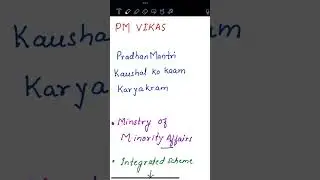 PM VIKAS
Pradhan Mantri
Kaushal ko kaam
Karyakram
• Minstry of
Minority Affairs
• Integrated scheme